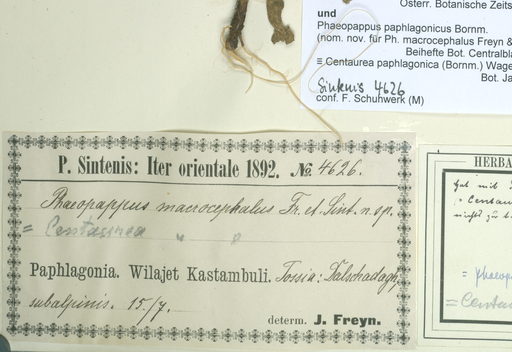 Österr. Botanische Zeits
und
Phaeopappus paphlagonicus Bornm.
(nom. nov. für Ph. macrocephalus Freyn &
Beihefte Bot. Centralbla
≡ Centaurea paphlagonica (Bornm.) Wage
Bot. Ja
Sintenis 4626
conf. F. Schuhwerk (M)
P. Sintenis: Iter orientale 1892. No 4626.
Phaeopappus macrocephalus Fr. et Sint. n. sp.
= Centaurea " "
Paphlagonia. Wilajet Kastambuli. Tossia: Dalschadagh,
subalpinis. 15/7.
determ. J. Freyn.
HERBA
= Phaeopap
= Centau